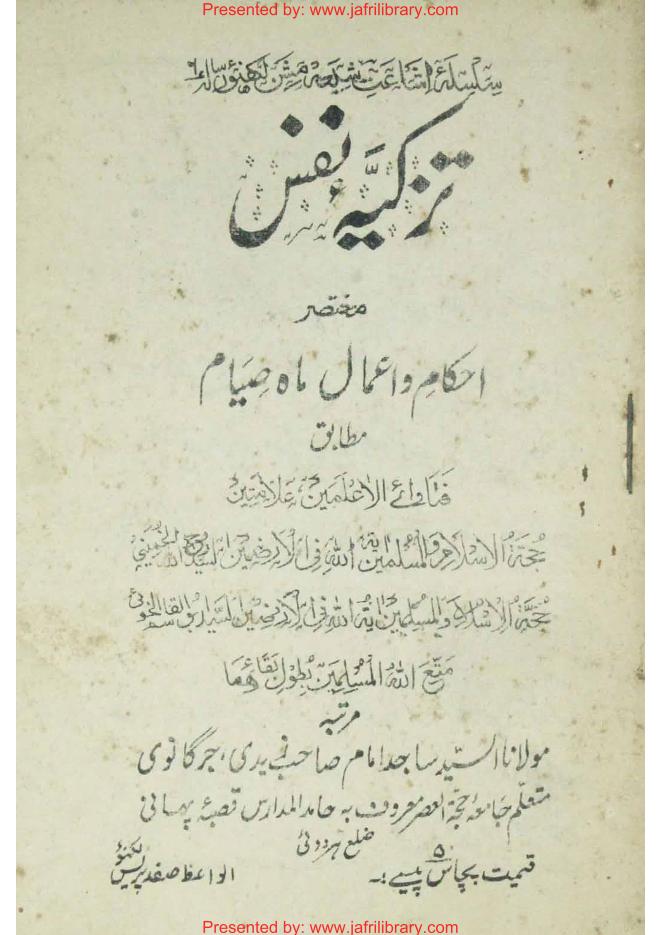 Presented by: www.jafrilibrary.com
سلسلۂ اشاعت شیعہ مشن لکھنؤ
تزکیۂ نفس
مختصر
احکام و اعمال ماہ صِیَام
مطابق
فَتَاوائے الاَعْلَمَیْن، عَلاَّمَتَیْن
حُجَّۃُ الْاِسْلَامِ وَالْمُسْلِمِیْنَ اٰیَۃُ اللّٰہِ فِی الْاَرْضِیْنَ السَّیِّد رُوحُ اللّٰہِ الخمینی
حُجَّۃُ الْاِسْلَامِ وَالْمُسْلِمِیْنَ اٰیَۃُ اللّٰہِ فِی الْاَرْضِیْنَ السَّیِّد ابُو القاسم الخوئی
مَتَّعَ اللّٰہُ الْمُسْلِمِیْنَ بِطُوْلِ بَقَائِھِمَا
مرتبہ
مولانا السیّد ساجد امام صاحب زیدی، جرگانوی
متعلّم جامعہ حجّۃ العصر معروف بہ حامد المدارس قصبۂ پہانی
ضلع ہردوئی
قیمت پچاس پیسے
الواعظ صفدر پریس لکھنؤ
Presented by: www.jafrilibrary.com